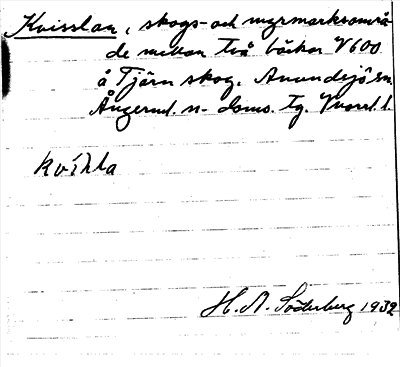 Kvisslan, skogs- och myrmarksområ
de mellan två bäckar V600
å Tjärn skog. Anundsjö sn.
Ångerml. n. doms. tg. Vnorrl. l.
kvihla
H. A. Söderberg 1932